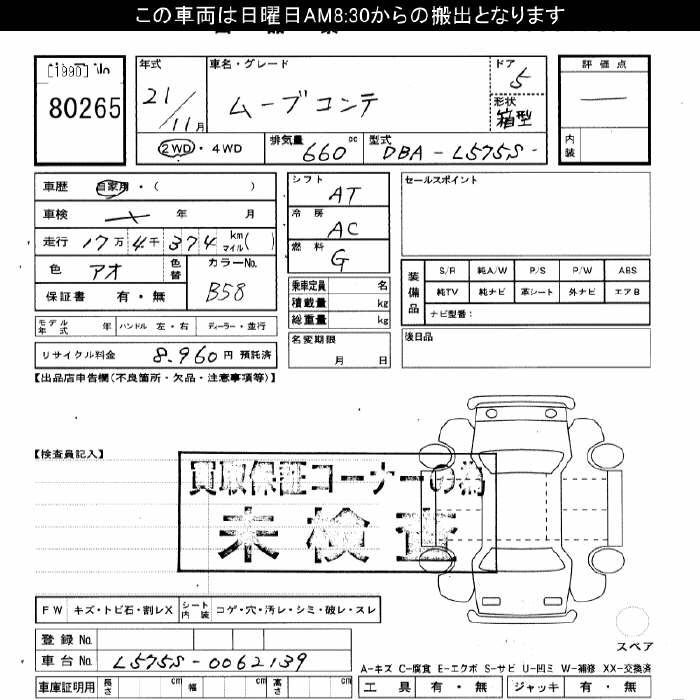 この車両は日曜日AM8:30からの搬出となります
[1990] 年式 車名・グレード ドア 5 評価点
80265 21/11月 ムーブコンテ 形状 箱型 —
2WD・4WD 排気量 660 cc 型式 DBA-L575S- 内装
車歴 自家用・( ) シフト AT セールスポイント
車検 年 月 冷房 AC
走行 17万4千374 km マイル( ) 燃料 G
色 アオ 色替 カラーNo. B58 装備品 S/R 純A/W P/S P/W ABS
保証書 有・無 乗車定員 名 純TV 純ナビ 革シート 外ナビ エアB
積載量 kg ナビ型番:
モデル年式 年 ハンドル 左・右 ディーラー・並行 総重量 kg 後日品
リサイクル料金 8,960円 預託済 名変期限 月 日
【出品店申告欄(不良箇所・欠品・注意事項等)】
【検査員記入】
買取保証コーナーの為
未検査
FW キズ・トビ石・割レX シート内装 コゲ・穴・汚レ・シミ・破レ・スレ
スペア
登録No.
車台No. L575S-0062139
A-キズ C-腐食 E-エクボ S-サビ U-凹ミ W-補修 XX-交換済
車庫証明用 長さ cm 幅 cm 高さ cm 工具 有・無 ジャッキ 有・無